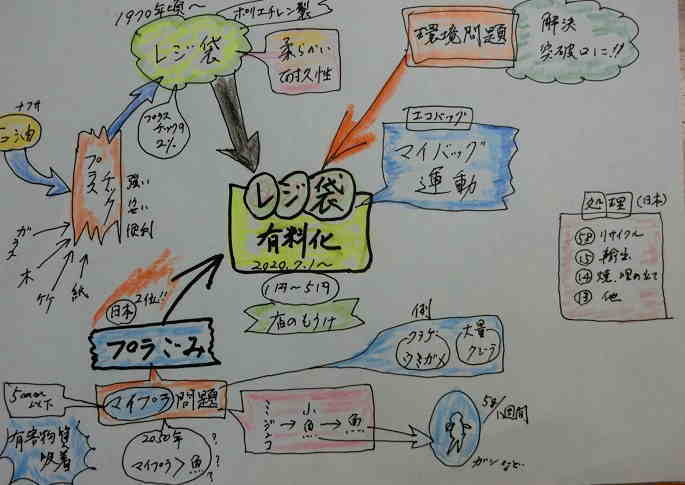 1970年頃～
ポリエチレン製
レジ袋
柔らかい
耐久性
環境問題
解決
突破口に!!
プラス
チックの
2%
ナフサ
石油
プラスチック
強い
安い
便利
ガラス
木
竹
紙
エコバッグ
マイバッグ
運動
レジ袋
有料化
2020.7.1～
1円～5円
店のもうけ
処理
(日本)
58 リサイクル
15 輸出
14 焼、埋め立て
13 他
日本2位!!
プラごみ
例
クラゲ
ウミガメ
大量
クジラ
5mm
以下
マイプラ問題
有害物質
吸着
2050年
マイプラ>魚
?
?
?
ミジンコ→小魚→魚
5g/1週間
ガンなど…